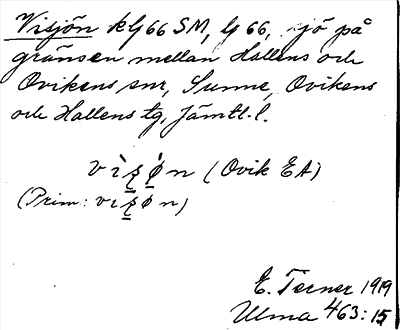 Visjön kG 66 SM, G 66, sjö på
gränsen mellan Hallens och
Ovikens snr, Sunne, Ovikens
och Hallens tg, Jämtl. l.
(Ovik EA)
(Prim:
E. Terner 1919
Ulma 463:15